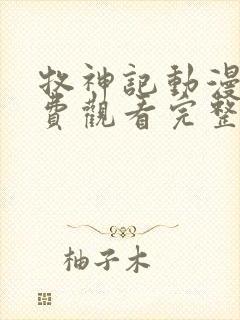 牧神記動漫
費觀看完整
柚子木